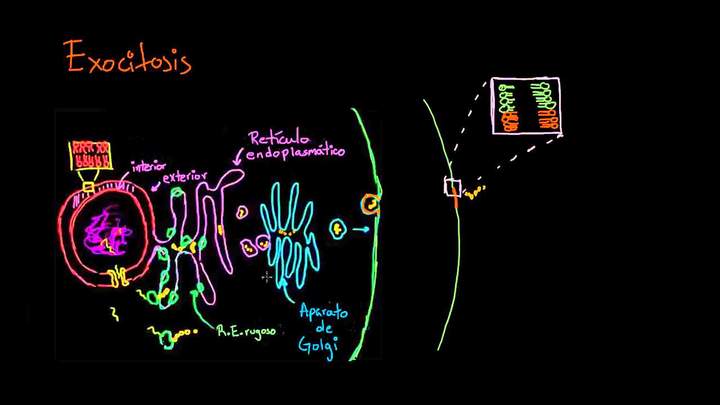 Exocitosis
interior
exterior
Retículo
endoplasmático
R.E. rugoso
Aparato
de
Golgi